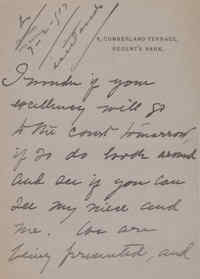 5, CUMBERLAND TERRACE,
REGENT'S PARK.
I wonder if your
excellency will go
to the court tomorrow,
if so do look around
and see if you can
see my niece and
me. We are
being presented, and